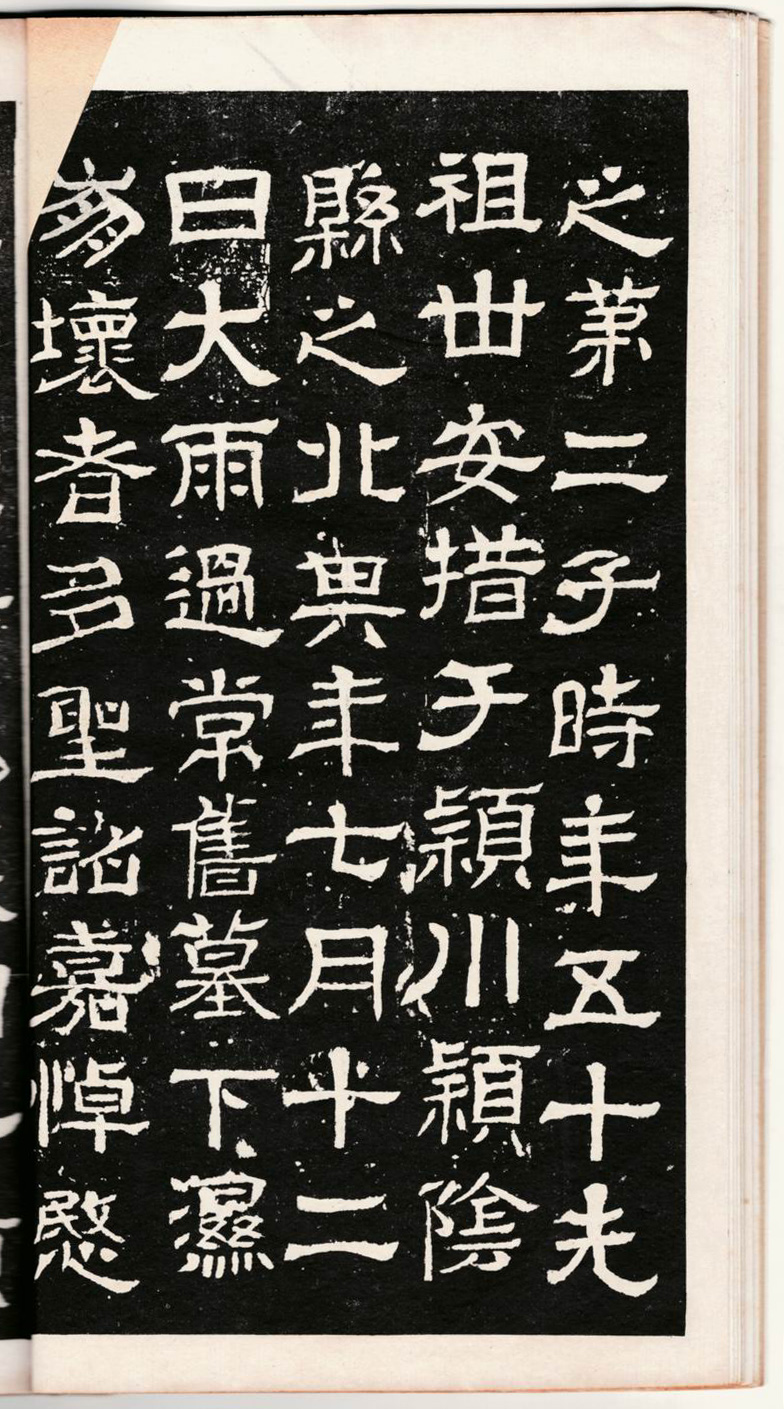 之苐二子時年五十先
祖丗安措于潁川潁陰
縣之北其年七月十二
曰大雨過常舊墓下濕
崩壞者多聖詔嘉悼愍